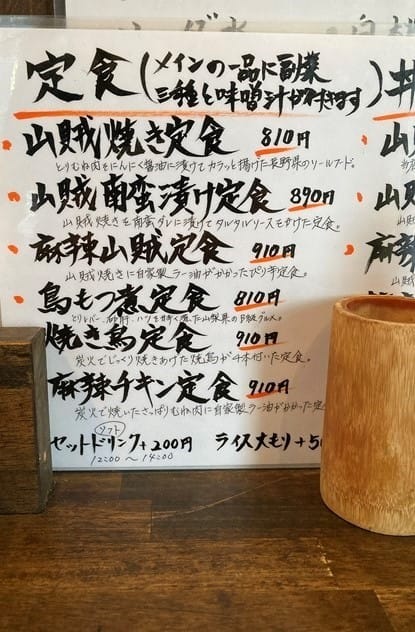 定食(メインの一品に副菜
三種と味噌汁が付きます)
山賊焼き定食 810円
とりむね肉をにんにく醤油に漬けてカラッと揚げた長野県のソールフード。
山賊南蛮漬け定食 890円
山賊焼きを南蛮ダレに漬けてタルタルソースをかけた定食。
麻辣山賊定食 910円
山賊焼きに自家製ラー油がかかったびり辛定食。
鳥もつ煮定食 810円
とりレバー、砂肝、ハツを甘辛く煮た山梨県のB級グルメ。
焼き鳥定食 910円
炭火でじっくり焼きあげた焼鳥が4本付いた定食。
麻辣チキン定食 910円
炭火で焼いたさっぱりむね肉に自家製ラー油がかかった定
(ソフト)
セットドリンク+200円 ライス大もり+5
12:00〜14:00
丼
山
山
麻辣